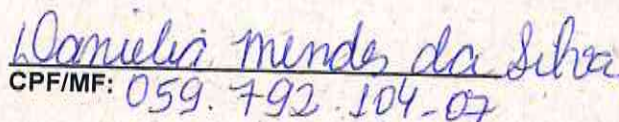 Danielia mendes da Silva
CPF/MF: 059.792.104-07